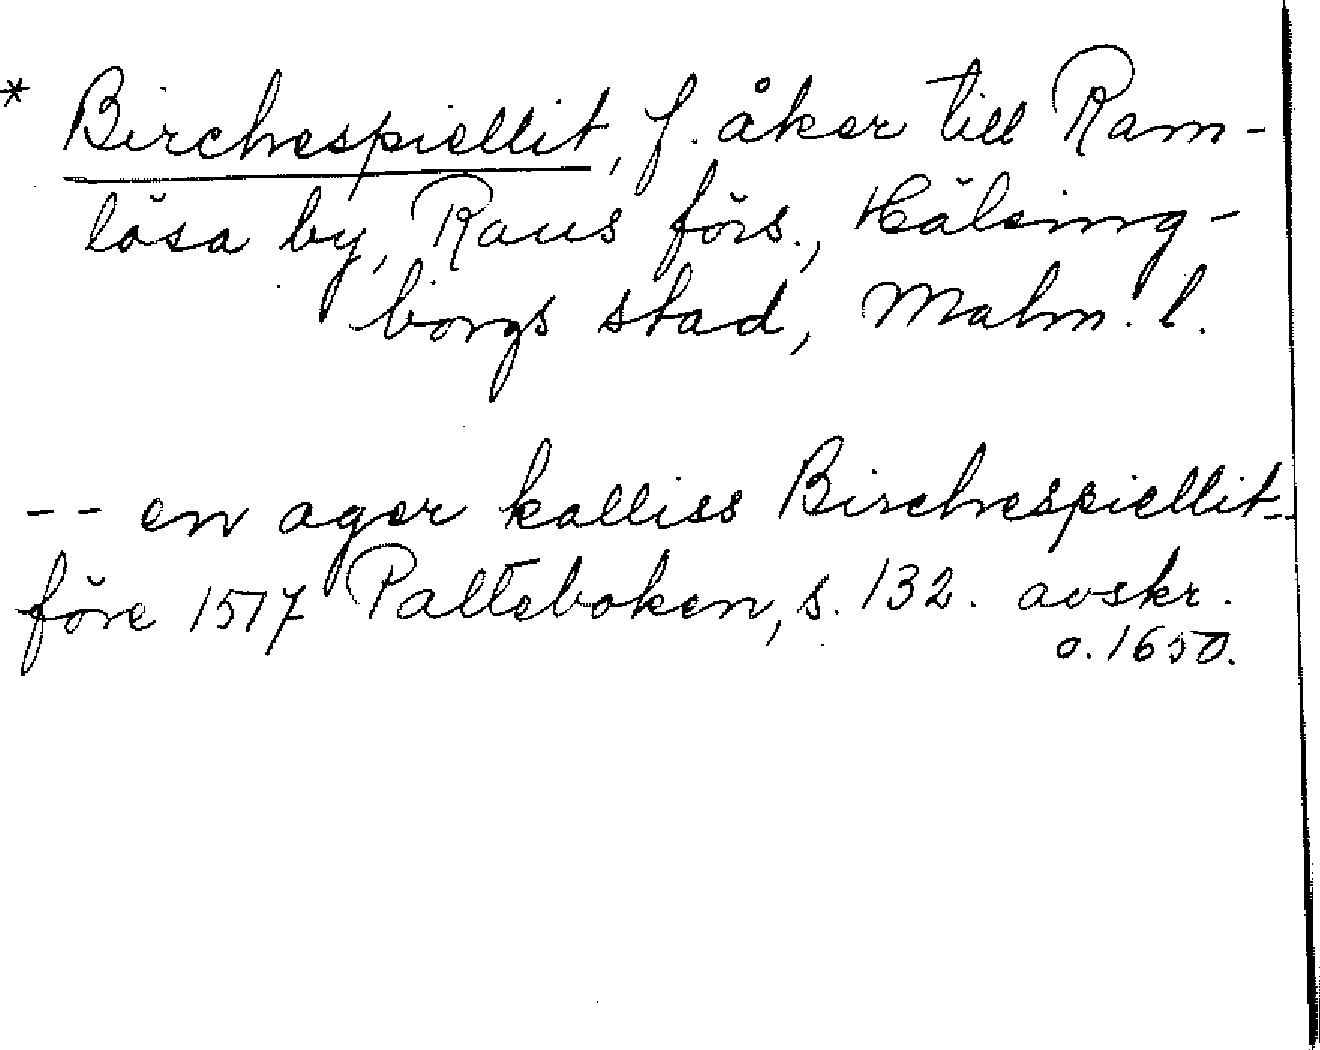 * Birchespiellit, f. åker till Ram-
lösa by, Raus förs., Hälsing-
borgs stad, Malm. l.
-- en ager kalliss Birchespiellit --
före 1517 Palteboken, s. 132. avskr.
o. 1650.